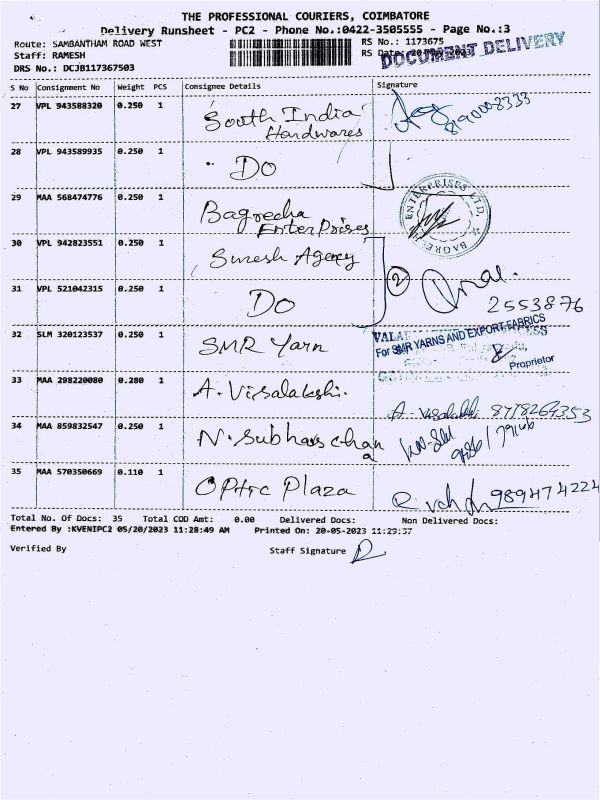 THE PROFESSIONAL COURIERS, COIMBATORE
Delivery Runsheet - PC2 - Phone No.:0422-3505555 - Page No.:3
Route: SAMBANTHAM ROAD WEST RS No.: 1173675
Staff: RAMESH RS Date: 20-May-2023
DOCUMENT DELIVERY
DRS No.: DCJB117367503
S No Consignment No Weight PCS Consignee Details Signature
27 VPL 943588320 0.250 1 South India Hardwares 8190008333
28 VPL 943589935 0.250 1 " DO
29 MAA 568474776 0.250 1 Bagrecha EnterPrises
ENTERPRISES LTD.
30 VPL 942823551 0.250 1 Suresh Agency
2
31 VPL 521042315 0.250 1 DO 2553876
32 SLM 320123537 0.250 1 SMR Yarn
For SMR YARNS AND EXPORT FABRICS
Proprietor
33 MAA 298220080 0.280 1 A. Visalakshi. A. Visalakshi 8778264353
34 MAA 859832547 0.250 1 N. Subhas chana
35 MAA 570350669 0.110 1 OPtic Plaza 9894774224
Total No. Of Docs: 35 Total COD Amt: 0.00 Delivered Docs: Non Delivered Docs:
Entered By :KVENIPC2 05/20/2023 11:28:49 AM Printed On: 20-05-2023 11:29:37
Verified By Staff Signature